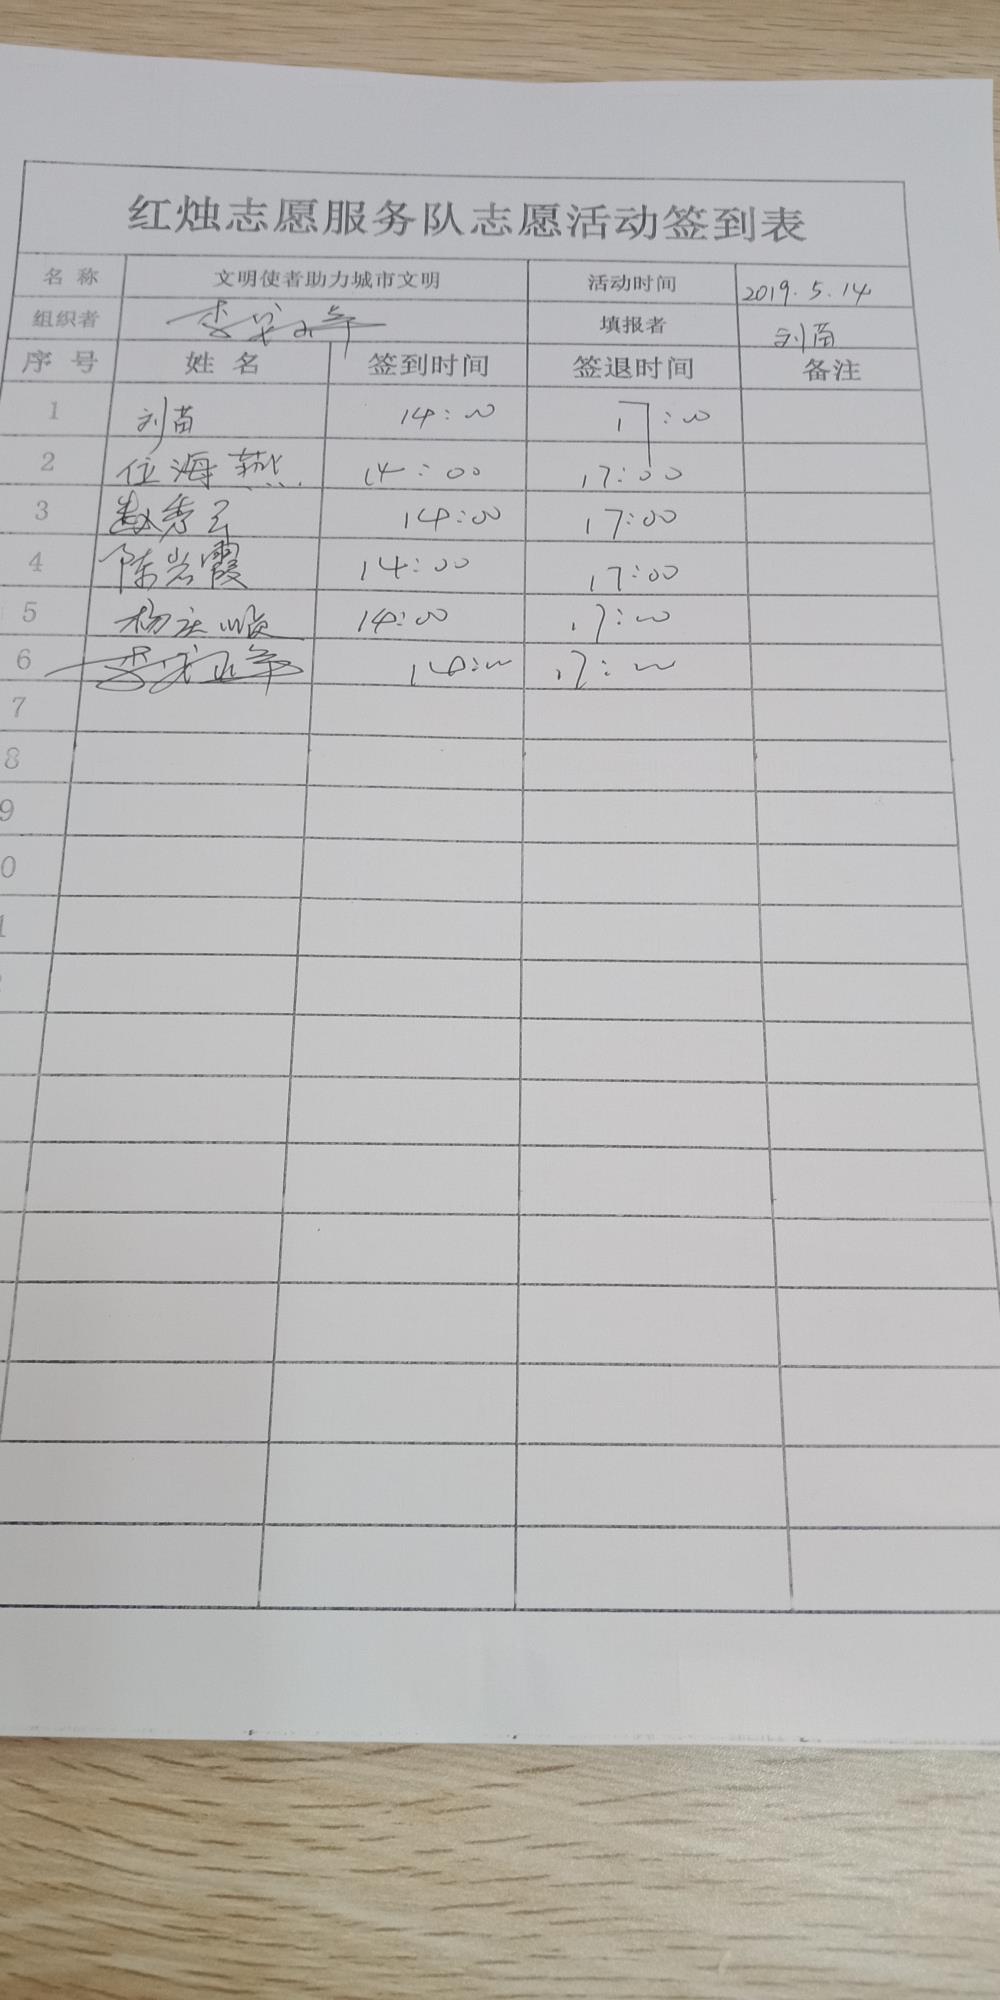 红烛志愿服务队志愿活动签到表
名称 文明使者助力城市文明 活动时间 2019.5.14
组织者 填报者 刘苗
序号 姓名 签到时间 签退时间 备注
1 刘苗 14:00 17:00
2 位海燕 14:00 17:00
3 赵秀云 14:00 17:00
4 陈岩霞 14:00 17:00
5 杨庆顺 14:00 17:00
6 14:00 17:00
7
8
9
0
1